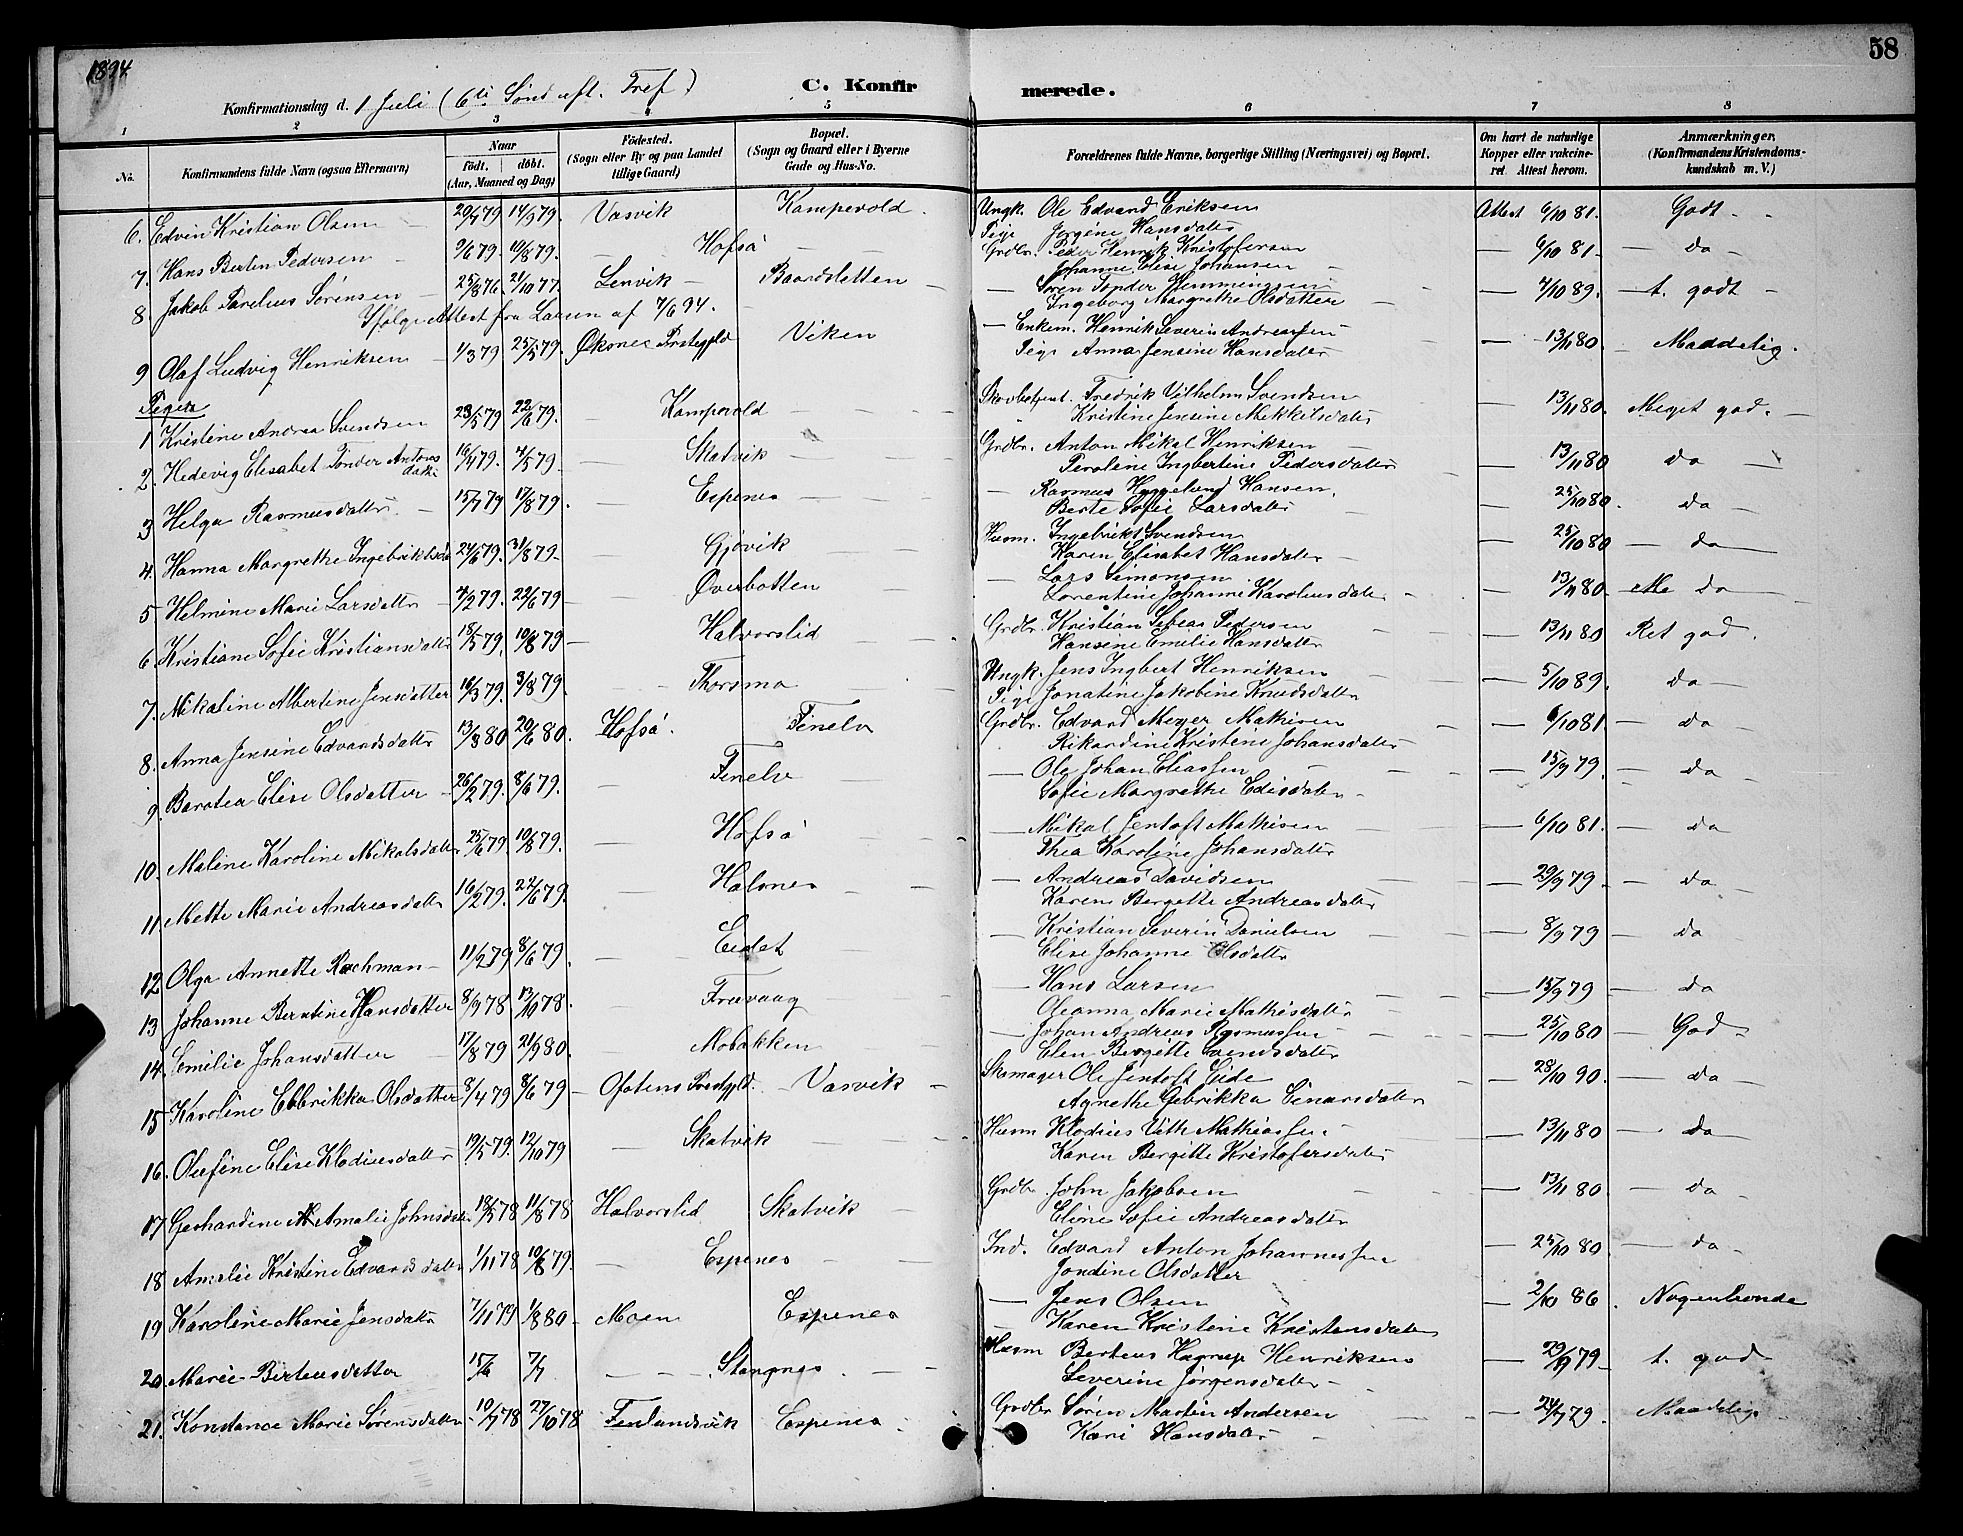 1894
58
Konfirmationsdag d. 1 Juli (6te Sønd. eft. Tref.)
C. Konfirmerede.
1 2 3 4 5 6 7 8
No.
Konfirmandens fulde Navn (ogsaa Efternavn)
Naar
Födt. döbt.
(Aar, Maaned og Dag)
Födested.
(Sogn eller By og paa Landet
tillige Gaard)
Bopæl.
(Sogn og Gaard eller i Byerne
Gade og Hus-No.
Forældrenes fulde Navne, borgerlige Stilling (Næringsvei) og Bopæl.
Om havt de naturlige
Kopper eller vakcine-
ret. Attest herom.
Anmærkninger.
(Konfirmandens Kristendoms-
kundskab m. V.)
6. Edvin Kristian Olsen 14/9 79. Vasvik Kampevold. Ungk. Ole Edvard Eriksen Attest 6/10 81. Godt
Pige Jørgine Hansdatter
7. Hans Bertin Pedersen 9/6 79. 10/8 79. Hofsö Grdbr. Peder Henrik Kristofersen 6/10 81. do
Johanne Elise Johansen
8 Jakob Parelius Sørensen 25/8 76. 21/10 77. Lenvik Baardsletten Søren Tønder Hemmingsen 4/10 89. t. godt
Ingeborg Margrethe Olsdatter
Ifølge Attest fra af 7/6 94.
9 Olaf Ludvig Henriksen 1/3 79 25/5 79. Øksnes Prstegjld Viken Enkem. Henrik Severin Andreassen 13/11 80. Maadelig.
Pige Anna Jensine Hansdatter
Piger
1 Kristine Andrea Svendsen 23/5 79 22/6 79. Kampevold Fredrik Vilhelm Svendsen 13/11 80. Meget god.
Kristine Jensine Mekkelsdatter
2. Hedevig Elisabet Tønder Antons 16/4 79. 4/5 79 Skatvik Grdbr. Anton Mikal Henriksen 13/11 80 do
datter
Peroline Ingbertine Pedersdatter
3 Helga Rasmusdatter 15/7 79 17/8 79. Espenes Rasmus Hyggelund Hansen. 25/10 80. do
Berte Sofie Larsdatter
4. Hanna Margrethe Ingebriktsd. 24/6 79. 31/8 79. Gjövik Husm. Ingebrikt Svendsen 25/10 80 do
Karen Elisabet Hansdatter
5 Helmine Marie Larsdatter 4/2 79. 22/6 79 Överbotten Lars Simonsen 13/11 80 do
Lorentine Johanne Karoliusdatter
6. Kristiane Sofie Kristiansdatter 18/5 79. 10/8 79 Halvorslid Grdbr. Kristian Pedersen 13/11 80 Ret god.
Hansine Emilie Hansdatter
7. Mikaline Albertine Jensdatter 16/3 79. 3/8 79. Thorsmo Ungk. Jens Ingbert Henriksen 5/10 89. do
Pige Jonatine Jakobine Knudsdatter
8. Anna Jensine Edvardsdatter 13/3 80 20/6 80. Hofsö. Finelv Grdbr. Edvard Meyer Mathisen 6/10 81 do
Rikardine Kristine Johansdatter
9 Barolea Elise Olsdatter 26/2 79. 8/6 79. Finelv Ole Johan Eliassen 15/9 79. do
Sofie Margrethe Edisdatter
10. Maline Karoline Mikalsdatter 25/6 79. 10/8 79. Hofsö Mikal Jentoft Mathisen 6/10 81. do
Thea Karoline Johansdatter
11 Mette Marie Andreasdatter 16/2 79. 22/6 79. Halsnes Andreas Davidsen 29/9 79. do
Karen Bergette Andreasdatter
12 Olga Annette Rachman 11/2 79 8/6 79. Eidet Kristian Severin Danielsen 8/9 79 do
Elise Johanne Olsdatter
13 Johanne Berntine Hansdatter 8/9 78 13/10 78. Frovaag Hans Larsen 15/9 79 do
Oleanna Marie Mathisdatter
14. Emilie Johansdatter 17/8 79 21/9 80. Mobakken Johan Andreas Rasmussen 25/10 80 God
Elen Bergitte Svendsdatter
15 Karoline Ebbrikka Olsdatter 8/4 79 8/6 79 Ofotens Prestgjld. Vasvik Skomager Ole Jentoft Eide 28/10 90. do
Agnethe Gebrikka Einarsdatter
16. Olufine Elise Klodiusdatter 19/5 79. 12/10 79 Skatvik Husm Klodius Uth Mathiassen 13/11 80 do
Karen Bergitte Kristofersdatter
17 Gerhardine Amalie Johnsdatter 18/5 78 11/8 78 Halvorslid Skatvik Grdbr. John Jakobsen 13/11 80 do
Eline Sofie Andreasdatter
18 Amalie Kristine Edvardsdatter 1/11 78 10/8 79. Espenes Ind. Edvard Anton Johannessen 25/10 80 do
Jondine Olsdatter
19 Karoline Marie Jensdatter 7/11 79 1/8 80 Moen Espenes Jens Olsen 2/10 86. Nogenlunde
Karen Kristine Kristensdatter
20. Marie Berteusdatter 15/6 Stangnes Husm Berteus Hagrup Henriksen 29/9 79 t. god
Severine Jörgensdatter
21. Konstance Marie Sörensdatter 10/7 78 27/10 78 Finlandsvik Espenes Grdbr Sören Martin Andersen Maadelig
Kari Hansdatter